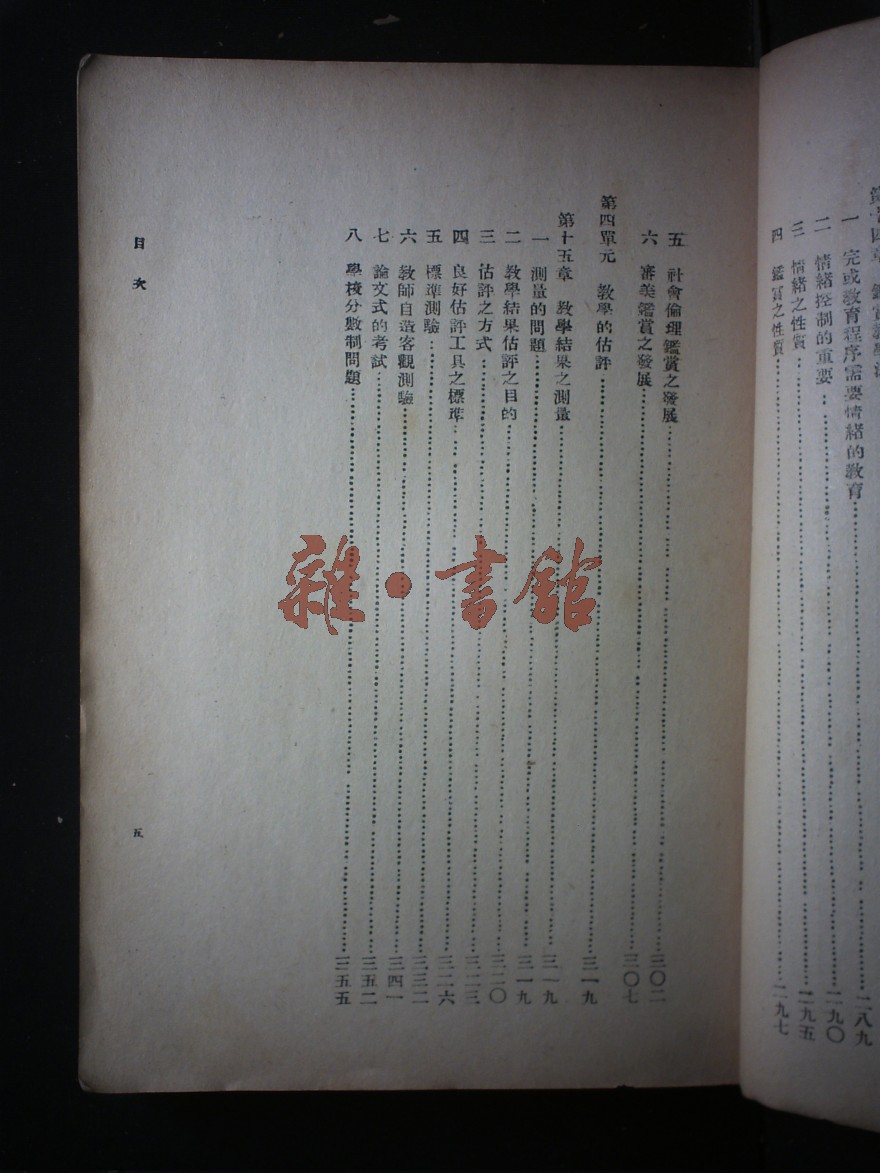 第十四章 鑑賞教學法
一 完成教育程序需要情緒的教育……二八九
二 情緒控制的重要……二九〇
三 情緒之性質……二九五
四 鑑賞之性質……二九七
五 社會倫理鑑賞之發展……三〇二
六 審美鑑賞之發展……三〇七
第四單元 教學的估評……三一九
第十五章 教學結果之測量……三一九
一 測量的問題……三一九
二 教學結果估評之目的……三二〇
三 估評之方式……三二三
四 良好估評工具之標準……三二六
五 標準測驗……三三二
六 教師自造客觀測驗……三四一
七 論文式的考試……三五二
八 學校分數制問題……三五五
目次
五
雜·書館